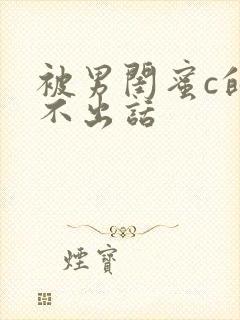 被男閨蜜c的
不出話
煙寶